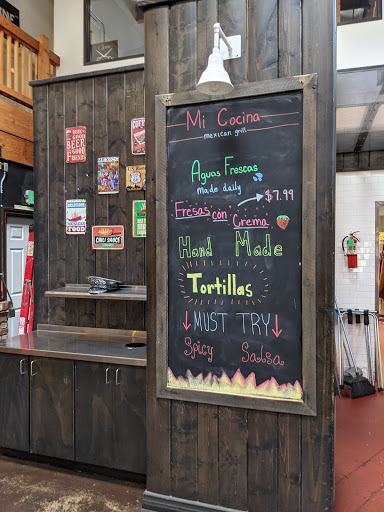 Mi Cocina
mexican grill
Aguas Frescas
Made daily
$7.99
Fresas con Crema
Hand Made
Tortillas
MUST TRY
Spicy Salsa
BEER
CHILI SAUCE